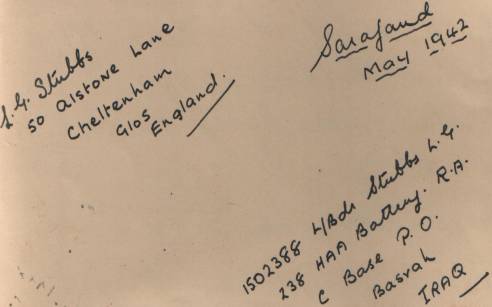 L.G. Stubbs
50 Alstone Lane
Cheltenham
Glos
England.
Sarafand
May 1942
1502388 L/Bdr Stubbs L.G.
238 HAA Battery. R.A.
C Base P.O.
Basrah
IRAQ